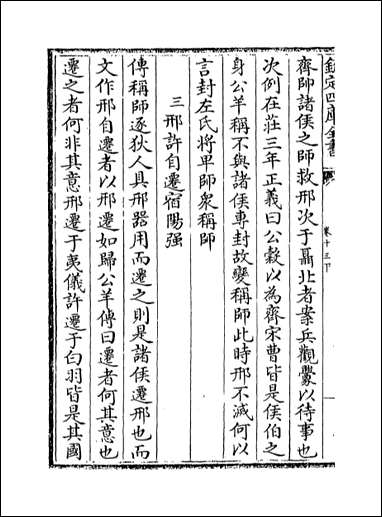 欽定四庫全書
卷十三下
齊師諸侯之師救邢次于聶北者案兵觀釁以待事也
次例在莊三年正義曰公穀以為齊宋曹皆是侯伯之
身公羊稱不與諸侯專封故變稱師此時邢不滅何以
言封左氏將卑師衆稱師
三邢許自遷宿陽强
傳稱師逐狄人具邢器用而遷之則是諸侯遷邢也而
文作邢自遷者以邢遷如歸公羊傳曰遷者何其意也
遷之者何非其意邢遷于夷儀許遷于白羽皆是其國